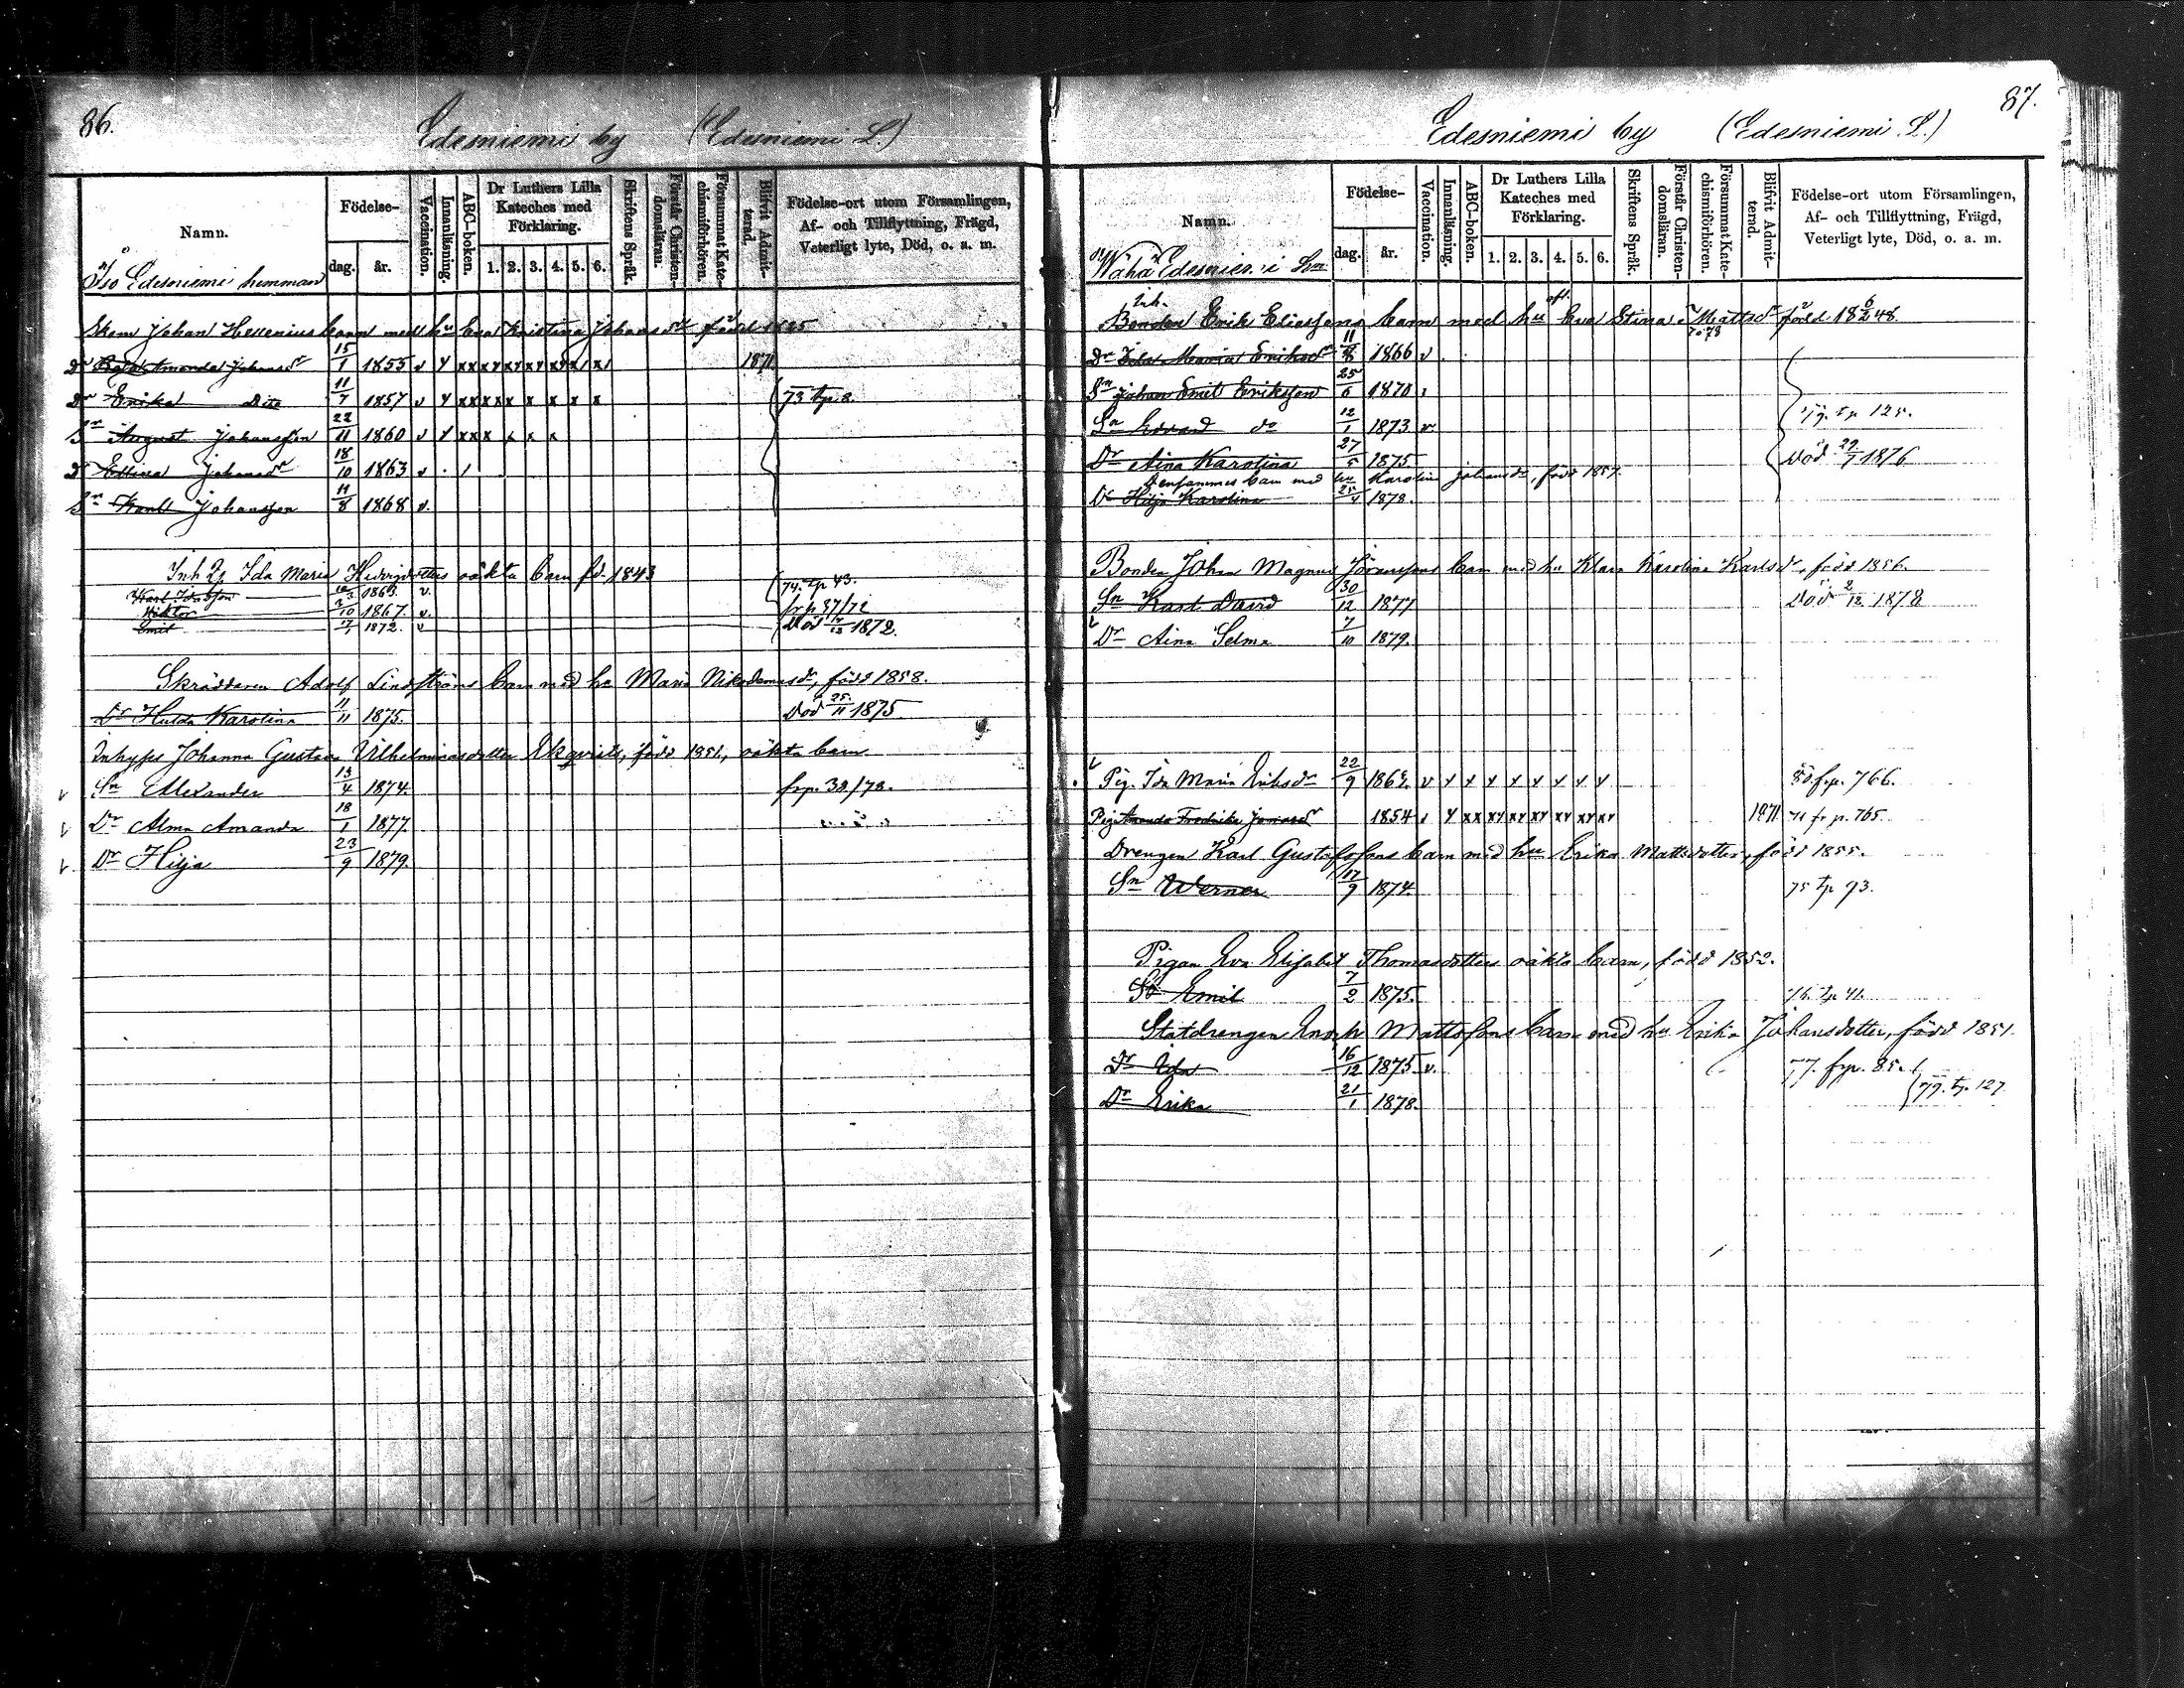 86.
Edesniemi by (Edesniemi L.)
Namn.
Födelse-
dag.
år.
Vaccination.
Innanläsning.
ABC-boken.
Dr Luthers Lilla Kateches med Förklaring.
1. 2. 3. 4. 5. 6.
Skriftens Språk.
Förstår Christen-domsläran.
Försummat Kate-chismiförhören.
Blifvit Admit-terad.
Födelse-ort utom Församlingen, Af- och Tillflyttning, Frägd, Veterligt lyte, Död, o. a. m.
Iso Edesniemi hemman
Skom Johan Hellenius barn med hu Eva Kristina Johansdr född 1825
Dr Amanda Johansdr 15/1 1853 v Y xx xy xy xy xy x/ x/ 1871.
Dr Erika Dito 11/7 1857 v Y xx xx x x x x x 73 tp. 8.
Sn August Johansson 22/11 1860 v Y xx x x x x
Dr Ellina Johansdr 18/10 1863 v
Sn Karll Johansson 11/8 1868 v.
Inh Q Ida Maria Hedvigsdotters oäkta barn fd. 1843
Karl 1863. v. 74. tp 43.
Wiktor 2/10 1867. v. frp 37/72
Emil 17/1 1872. v Död 1872.
Skräddaren Adolf Lindströms barn med hu Maria Nikodemusdr, född 1858.
Dr Hulda Karolina 11/11 1875. Död 25/11 1875
Inhyses Johanna Gustava Vilhelminasdotter Ekqvists, född 1851, oäkta barn.
v Sn Allexander 13/4 1874 frp. 38/78.
v Dr Alma Amanda 18/1 1877.
v Dr Hilja 23/9 1879.
87.
Edesniemi by (Edesniemi L.)
Namn.
Födelse-
dag.
år.
Vaccination.
Innanläsning.
ABC-boken.
Dr Luthers Lilla Kateches med Förklaring.
1. 2. 3. 4. 5. 6.
Skriftens Språk.
Förstår Christen-domsläran.
Försummat Kate-chismiförhören.
Blifvit Admit-terad.
Födelse-ort utom Församlingen, Af- och Tillflyttning, Frägd, Veterligt lyte, Död, o. a. m.
Wähä Edesniemi Hn
Inh.
Bonden Erik Eliassons barn med hu Eva Stina Mattsdr född 18 6/2 48.
Dr Ida Maria Eriksdr 11/8 1866 v
Sn Johan Emil Eriksson 25/6 1870
Sn Edvard do 12/1 1873 v tp 125.
Dr Aina Karolina 27/5 1875 Död 29/7 1876
Densammes barn med hu Karolina Johansdr, född 1857.
Dr Hilja Karolina 25/4 1878.
Bonden Johan Magnus Göranssons barn med hu Klara Karolina Karlsdr, född 1856.
Sn Karl David 30/12 1877 Död 2/12 1878
Dr Aina Selma 7/10 1879.
Pig. Ida Maria Eriksdr 22/9 186 v Y Y Y Y Y Y Y Y 80 frp. 766.
Pig Amanda Fredrika Jonasdr 1854 Y xx xy xy xy xy xy 1871 71 fr p. 765.
Drengen Karl Gustafssons barn med hu Erika Mattsdotter, född 1855.
Sn Werner 17/9 1874 75 tp 93.
Pigan Eva Elisabet Thomasdotters oäkta barn, född 1852.
Sn Emil 7/2 1875. 76 tp 41.
Statdrengen Enoch Mattssons barn med hu Erika Johansdotter, född 1851.
Dr Ida 16/12 1875 v. 77. frp. 85.
Dr Erika 21/1 1878. 79. tp. 127.